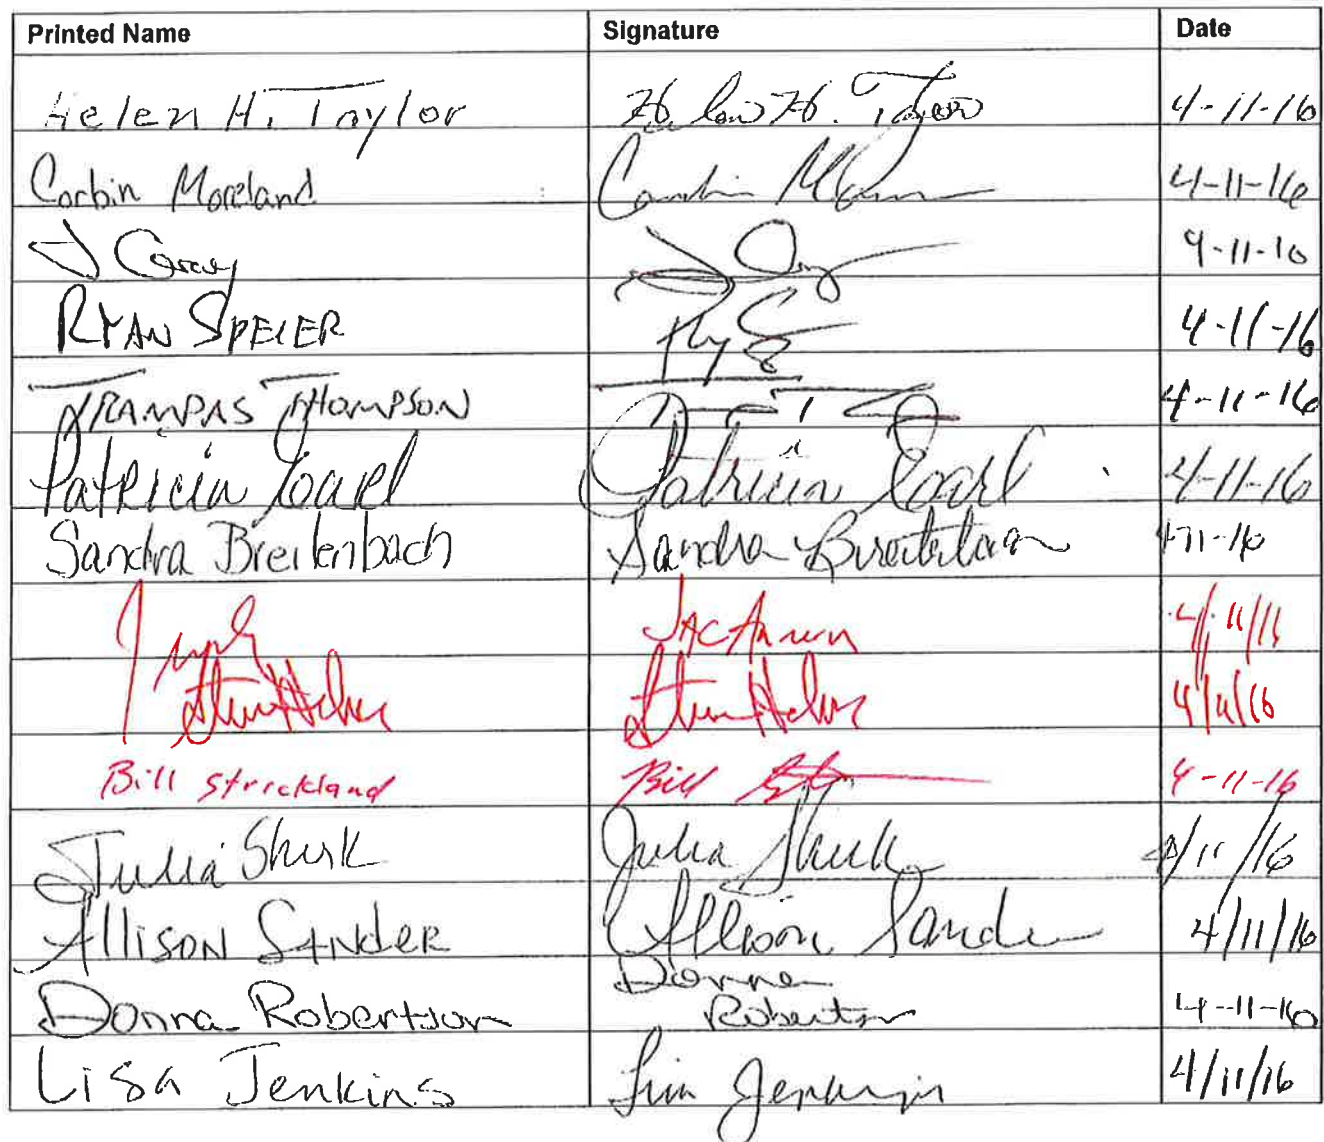 Printed Name Signature Date
Helen H. Taylor Helen H. Taylor 4-11-16
Corbin Moreland Corbin 4-11-16
J Corey J 4-11-16
RYAN SPEIER Ry S 4-11-16
TRAMPAS THOMPSON T T 4-11-16
Patricia Earl Patricia Earl 4-11-16
Sandra Breitenbach Sandra Breitenbach 4-11-16
4/11/16
Steve 4/11/16
Bill Strickland Bill 4-11-16
Julia Shuk Julia Shuk 4/11/16
Allison Sander Allison Sander 4/11/16
Donna Robertson Donna Robertson 4-11-16
Lisa Jenkins Lisa Jenkins 4/11/16